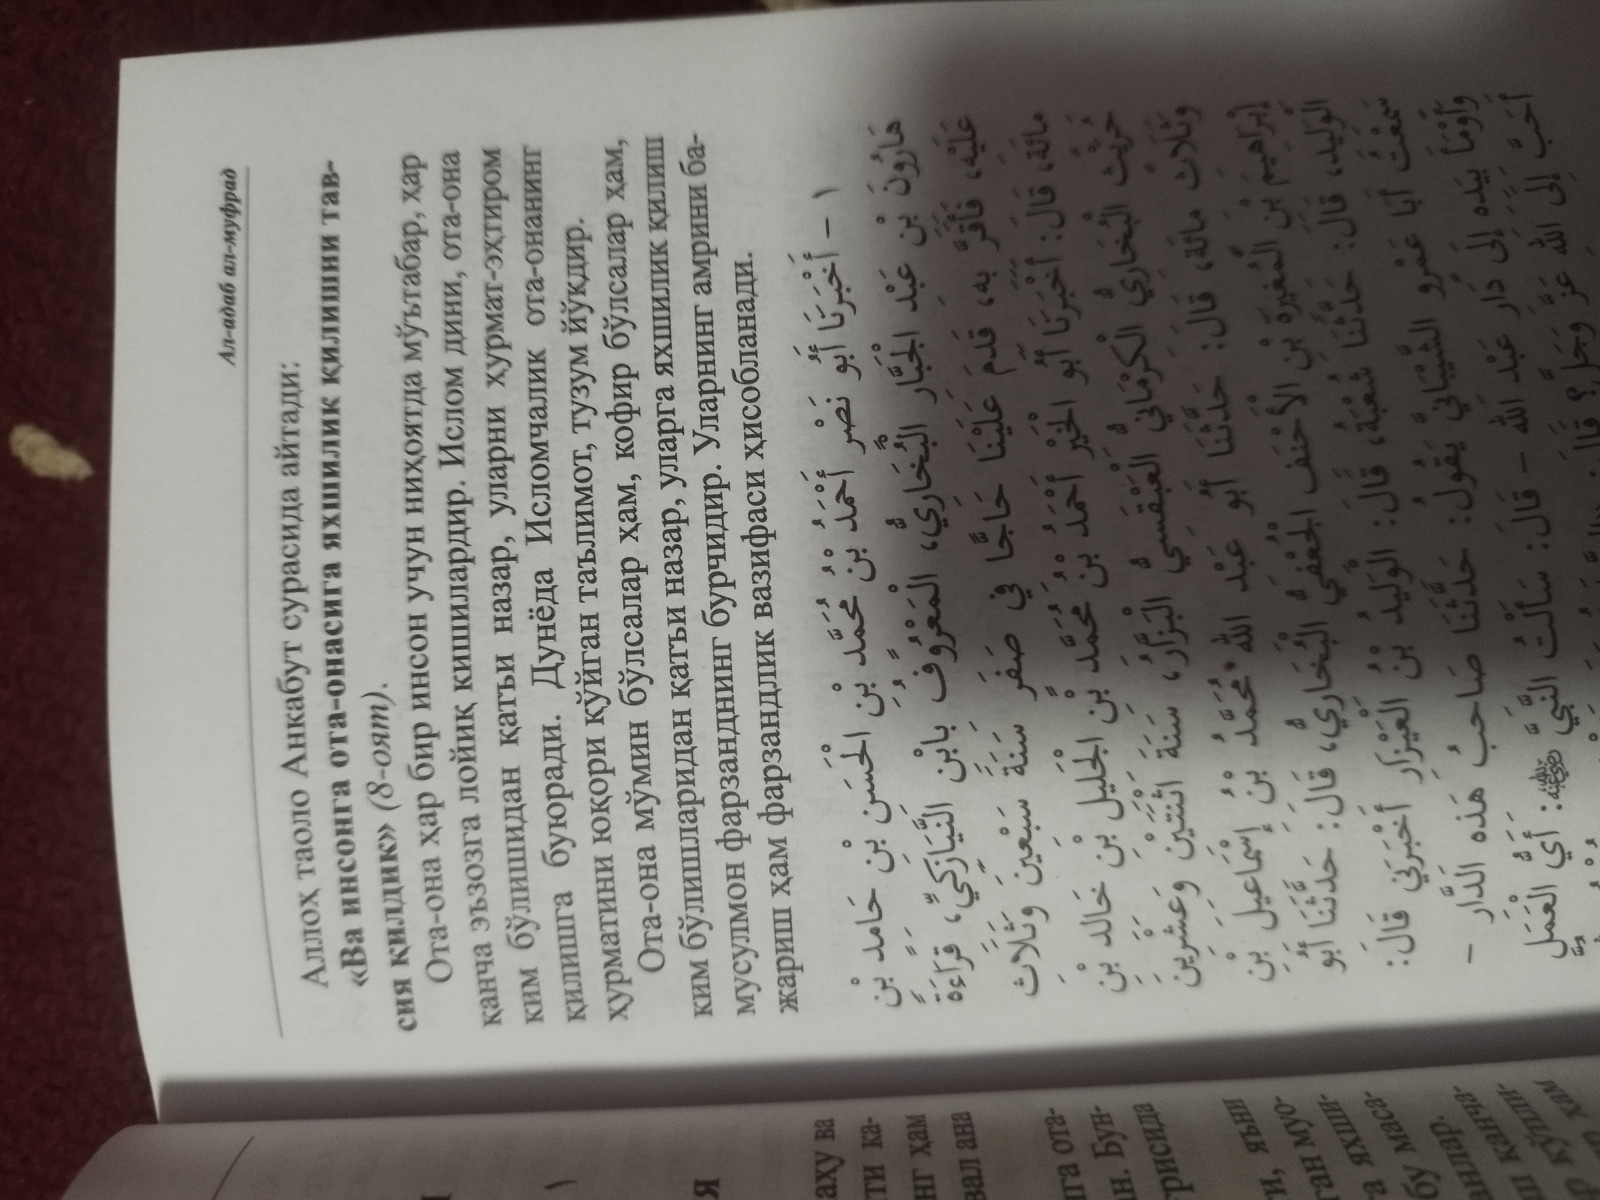 Ал-адаб ал-муфрад
Аллоҳ таоло Анкабут сурасида айтади:
«Ва инсонга ота-онасига яхшилик қилишни тав-
сия қилдик» (8-оят).
Ота-она ҳар бир инсон учун ниҳоятда мўътабар, ҳар
қанча эъзозга лойиқ кишилардир. Ислом дини, ота-она
ким бўлишидан қатъи назар, уларни ҳурмат-эҳтиром
қилишга буюради. Дунёда Исломчалик ота-онанинг
ҳурматини юқори қўйган таълимот, тузум йўқдир.
Ота-она мўмин бўлсалар ҳам, кофир бўлсалар ҳам,
ким бўлишларидан қатъи назар, уларга яхшилик қилиш
мусулмон фарзанднинг бурчидир. Уларнинг амрини ба-
жариш ҳам фарзандлик вазифаси ҳисобланади.
١ – أَخْبَرَنَا أَبُو نَصْرٍ أَحْمَدُ بْنُ مُحَمَّدِ بْنِ الْحَسَنِ بْنِ حَامِدِ بْنِ
هَارُونَ بْنِ عَبْدِ الْجَبَّارِ الْبُخَارِيُّ، الْمَعْرُوفُ بِابْنِ النَّيَازَكِيِّ، قِرَاءَةً
عَلَيْهِ، فَأَقَرَّ بِهِ، قَدِمَ عَلَيْنَا حَاجًّا فِي صَفَرٍ سَنَةَ سَبْعِينَ وَثَلَاثِ
مِائَةٍ، قَالَ: أَخْبَرَنَا أَبُو الْخَيْرِ أَحْمَدُ بْنُ مُحَمَّدِ بْنِ الْجَلِيلِ بْنِ خَالِدِ بْنِ
حُرَيْثٍ الْبُخَارِيُّ الْكِرْمَانِيُّ الْعَبْقَسِيُّ الْبَزَّارُ، سَنَةَ اثْنَتَيْنِ وَعِشْرِينَ
وَثَلَاثِ مِائَةٍ، قَالَ: حَدَّثَنَا أَبُو عَبْدِ اللهِ مُحَمَّدُ بْنُ إِسْمَاعِيلَ بْنِ
إِبْرَاهِيمَ بْنِ الْمُغِيرَةِ بْنِ الْأَحْنَفِ الْجُعْفِيُّ الْبُخَارِيُّ، قَالَ: حَدَّثَنَا أَبُو
الْوَلِيدِ، قَالَ: حَدَّثَنَا شُعْبَةُ، قَالَ: الْوَلِيدُ بْنُ الْعَيْزَارِ أَخْبَرَنِي قَالَ:
سَمِعْتُ أَبَا عَمْرٍو الشَّيْبَانِيَّ يَقُولُ: حَدَّثَنَا صَاحِبُ هَذِهِ الدَّارِ –
وَأَوْمَأَ بِيَدِهِ إِلَى دَارِ عَبْدِ اللهِ – قَالَ: سَأَلْتُ النَّبِيَّ ﷺ: أَيُّ الْعَمَلِ
أَحَبُّ إِلَى اللهِ عَزَّ وَجَلَّ؟ قَالَ:
١
Я
аху ва
ти ка-
нг ҳам
вал ана
нга ота-
н. Бун-
трисида
и, яъни
ган муо-
а яхши-
бу маса-
нлар.
ш қанча-